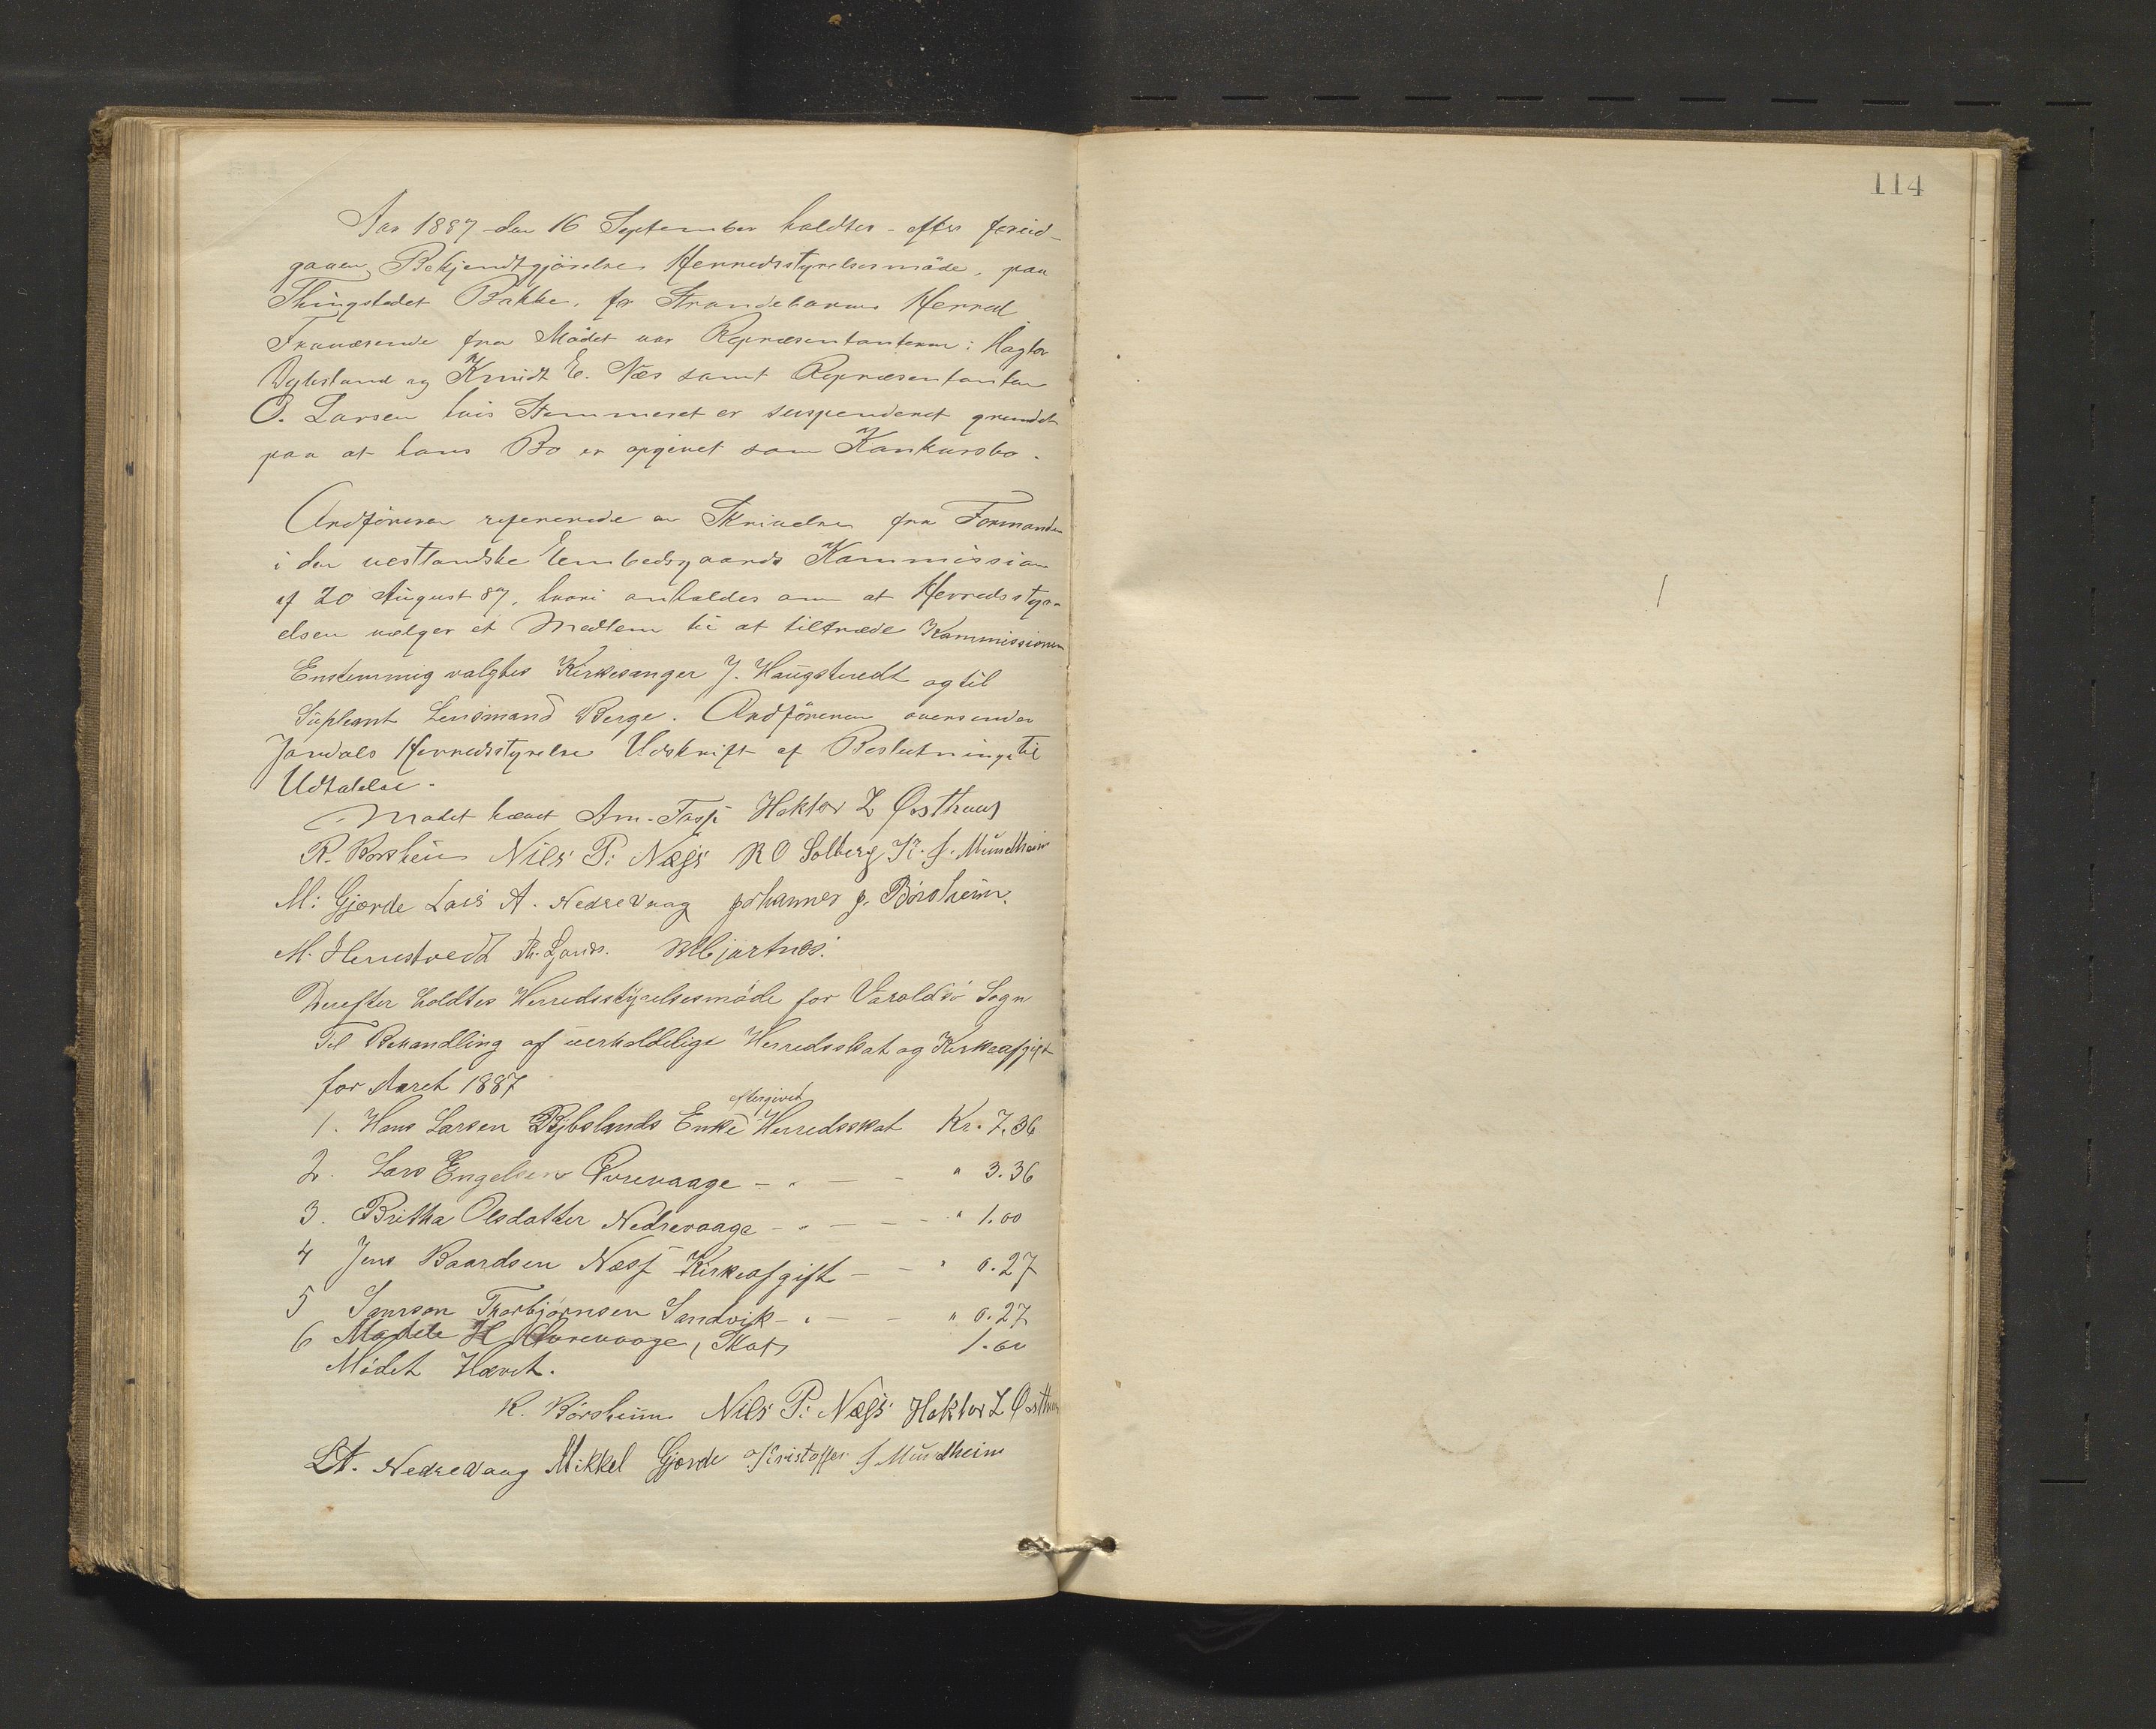 114
Aar 1887 den 16 September holdtes - efter forud-
gaaen Bekjendtgjörelse Herredsstyrelsesmöde, paa
Thingstedet Bakke, for Strandebarms Herred
Fraværende fra Mödet var Repræsentanterne: Hagtor
Dybsland og Knudt E. Næs samt Repræsentanten
O. Larsen hvis Stemmeret er suspenderet grundet
paa at hans Bo er opgivet som Konkursbo.
Ordföreren refererede en Skrivelse fra Formanden
i den vestlandske Embedsgaards Kommission
af 20 August 87, hvori anholdes om at Herredsstyr-
elsen vælger et Medlem til at tiltræde Kommissionen
Enstemmig valgtes Kirkesanger J. Haugstvedt og til
Supleant Lensmand Berge. Ordföreren oversender
Jondals Herredsstyrelse Udskrift af Beslutningen til
Udtalelse.
Mødet hævet Am. Hoktor L Østhuus
R. Børsheim Nils P: Næss R O Solberg K. J. Mundheim
M: Gjerde Lars A. Nedrevaag Johannes J. Børsheim.
M. Herrestvedt Th. Hjartnes.
Derefter holdtes Herredsstyrelsesmöde for Varaldsö Sogn
Til Behandling af uerholdelige Herredsskat og Kirkeafgift
for Aaret 1887
eftergivet
1. Hans Larsen Dybslands Enke Herredsskat Kr. 7.36
2. Lars Engelsen Øvrevaage - " - - " 3.36
3. Britha Olsdatter Nedrevaage - " - - " 1.00
4 Jens Baardsen Næss Kirkeafgift - - " 0.27
5 Samson Thorbjørnsen Sandvik - " - - " 0.27
6 H Øvrevaage, Skat 1.00
Mödet Hævet.
R. Börsheim Nils P: Næss Hoktor L Østhuus
L A. Nedrevaag Mikkel Gjerde Kristoffer J Mundheim